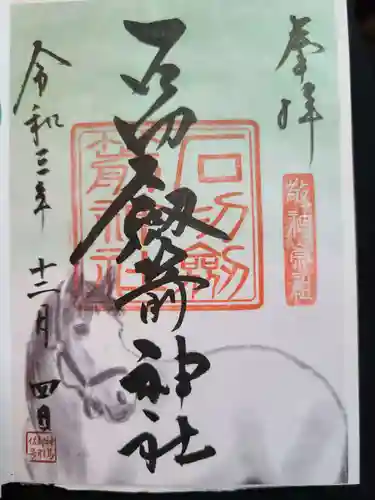 奉拝
敬神崇祖
石切劔箭神社
石切劔
箭神社
令和三年十二月四日